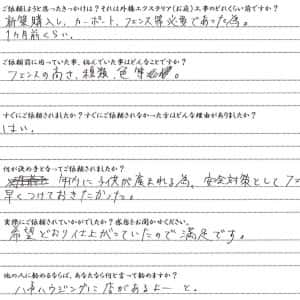 ご依頼しようと思ったきっかけは？それは外構エクステリア（お庭）工事のどれくらい前ですか？
新築購入し、カーポート、フェンス等必要であった為。
1ヵ月前くらい。
ご依頼前に迷っていた事、悩んでいた事はどんなことですか？
フェンスの高さ、種類、色 等
すぐにご依頼されましたか？すぐにご依頼されなかった方はどんな理由がありましたか？
はい。
何が決め手となってご依頼されましたか？
年内に子供が産まれる為、安全対策として フェ
早くつけておきたかった。
実際にご依頼されていかがでしたか？感想をお聞かせください。
希望どおり仕上がっていたので満足です。
他の人に勧めるならば、あなたなら何と言って勧めますか？
ハウジングに店があるよーと。